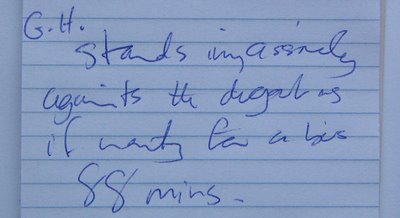 G.H.
stands impassively
againts the dugout as
if waiting for a bus
88 mins.